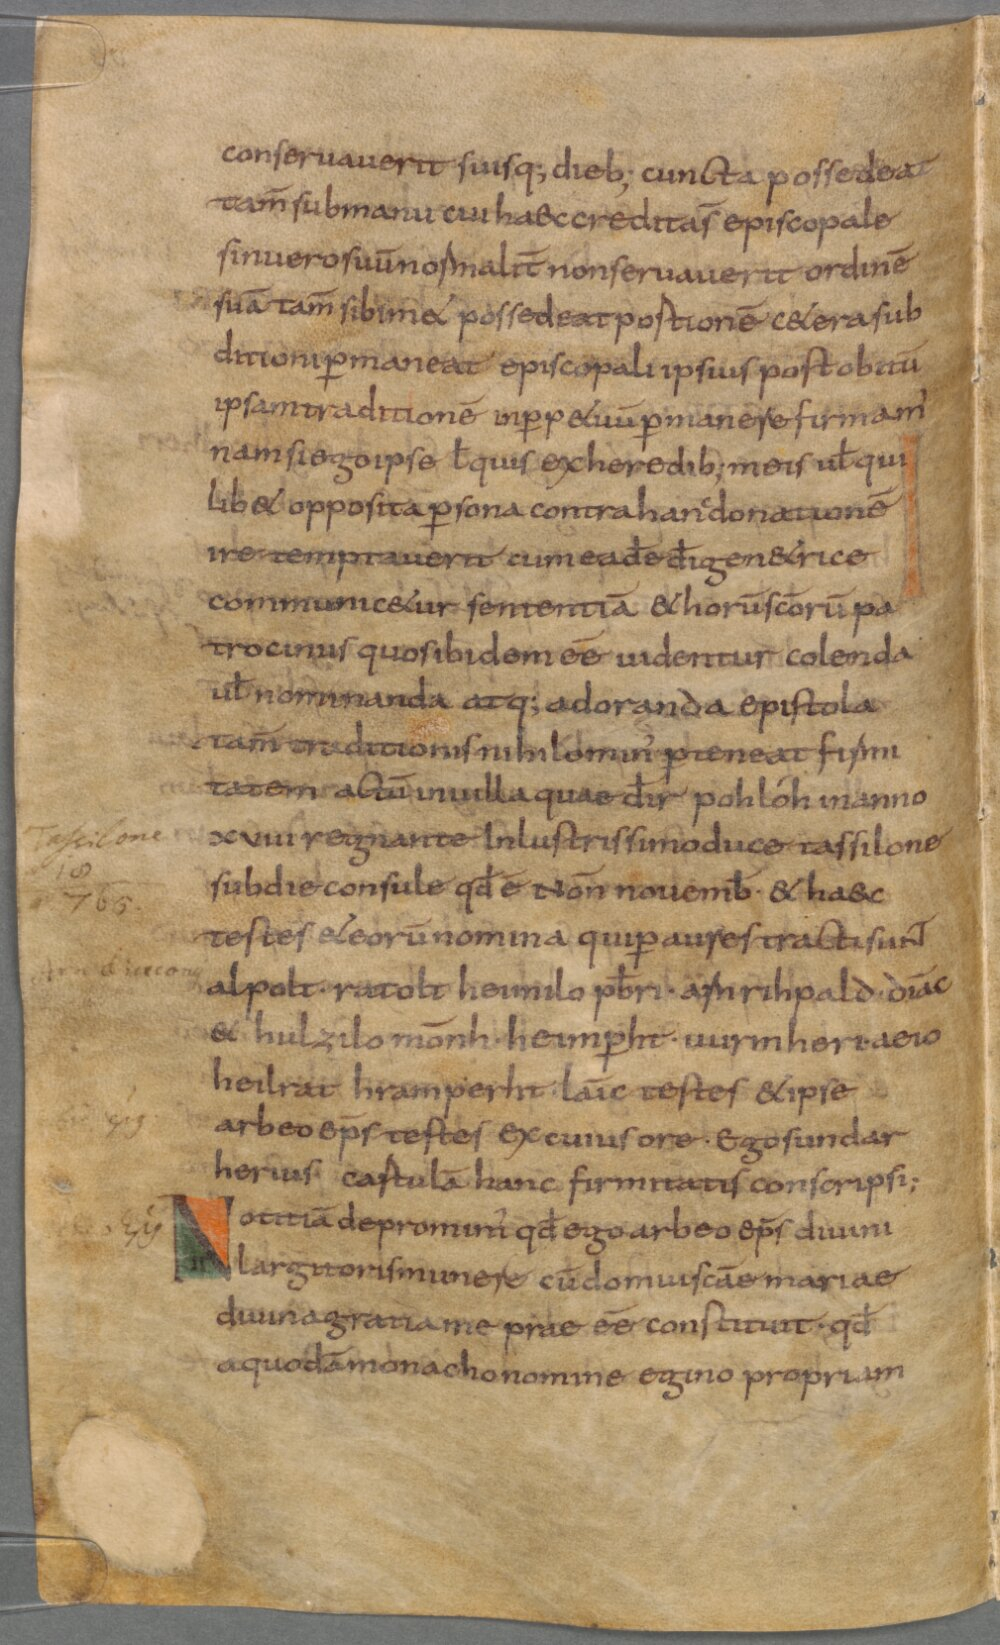 conseruauerit suisq; dieb; cuncta possedeat
tam̄ sub manu cui haec credita s̄ episcopale
sin uero suū normalit̄ non seruauerit ordinē
suā tam̄ sibimet possedeat postionē cetera sub
ditioni p̱maneat episcopali ipsius post obitū
ipsam traditionē in p̱petuū p̱manere firmam'
nam si ego ipse ł quis ex heredib; meis uł qui
libet opposita p̱sona contra hanc donationē
ire temptauerit cum eadē dei genetrice
communicetur sententiā et horū sc̄orū pa
trociniis quos ibidem eē uidentur colenda
uł nominanda atq; adoranda epistola
tam̄ traditionis nihilomin' p̱teneat firmi
tatem actū in uilla quae dr̄ pohlóh in anno
xviii regnante Inlustrissimo duce tassilone
sub die consule qđ ē Non̄ nouemb̄· et haec
testes et eorū nomina qui p̱ aures tracti sunt
alpolt· ratolt heimilo pb̄ri· amrihpald· diāc
et hulzilo mōnh· heimp̱ht· uurmheri· aeio
heilrat hramperht· lāic testes et ipse
arbeo ep̄s testes ex cuius ore· Ego sundar
herius· castulā hanc firmitatis conscripsi;
Notitiā depromim' qđ ego arbeo ep̄s diuini
largitoris munere cū domui sc̄ae mariae
diuina gratia me prae eē constituit· qđ
a quodā monacho nomine egino propriam
Tassilone
18
765.